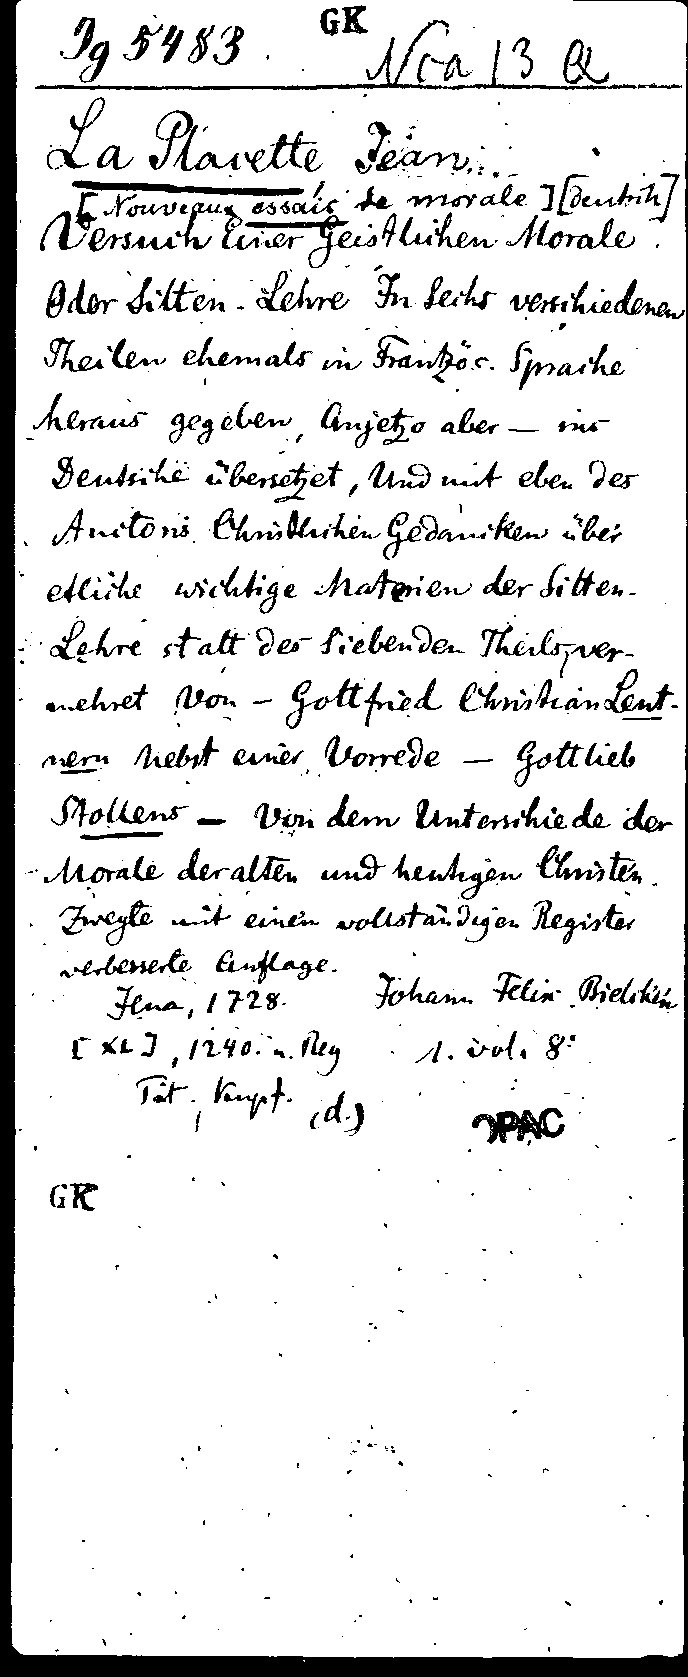 GK
Ig 5483. Nca 13 a
La Placette, Jean
[Nouveaux essais de morale] [deutsch]
Versuch Einer Geistlichen Morale
Oder Sitten-Lehre In Sechs verschiedenen
Theilen ehemals in Frantzös. Sprache
heraus gegeben, Anjetzo aber — ins
Deutsche übersetzet, Und mit eben des
Auctoris Christlichen Gedancken über
etliche wichtige Materien der Sitten-
Lehre statt des Siebenden Theils, ver-
mehret Von — Gottfried Christian Lent-
nern Nebst einer Vorrede — Gottlieb
Stollens — Von dem Unterschiede der
Morale der alten und heutigen Christen.
Zweyte mit einem vollständigen Register
verbesserte Auflage.
Jena, 1728. Johann Felix Bielcken
[XL], 1240. u. Reg 1. vol. 8°
Tit. Kupf. (d.)
OPAC
GK